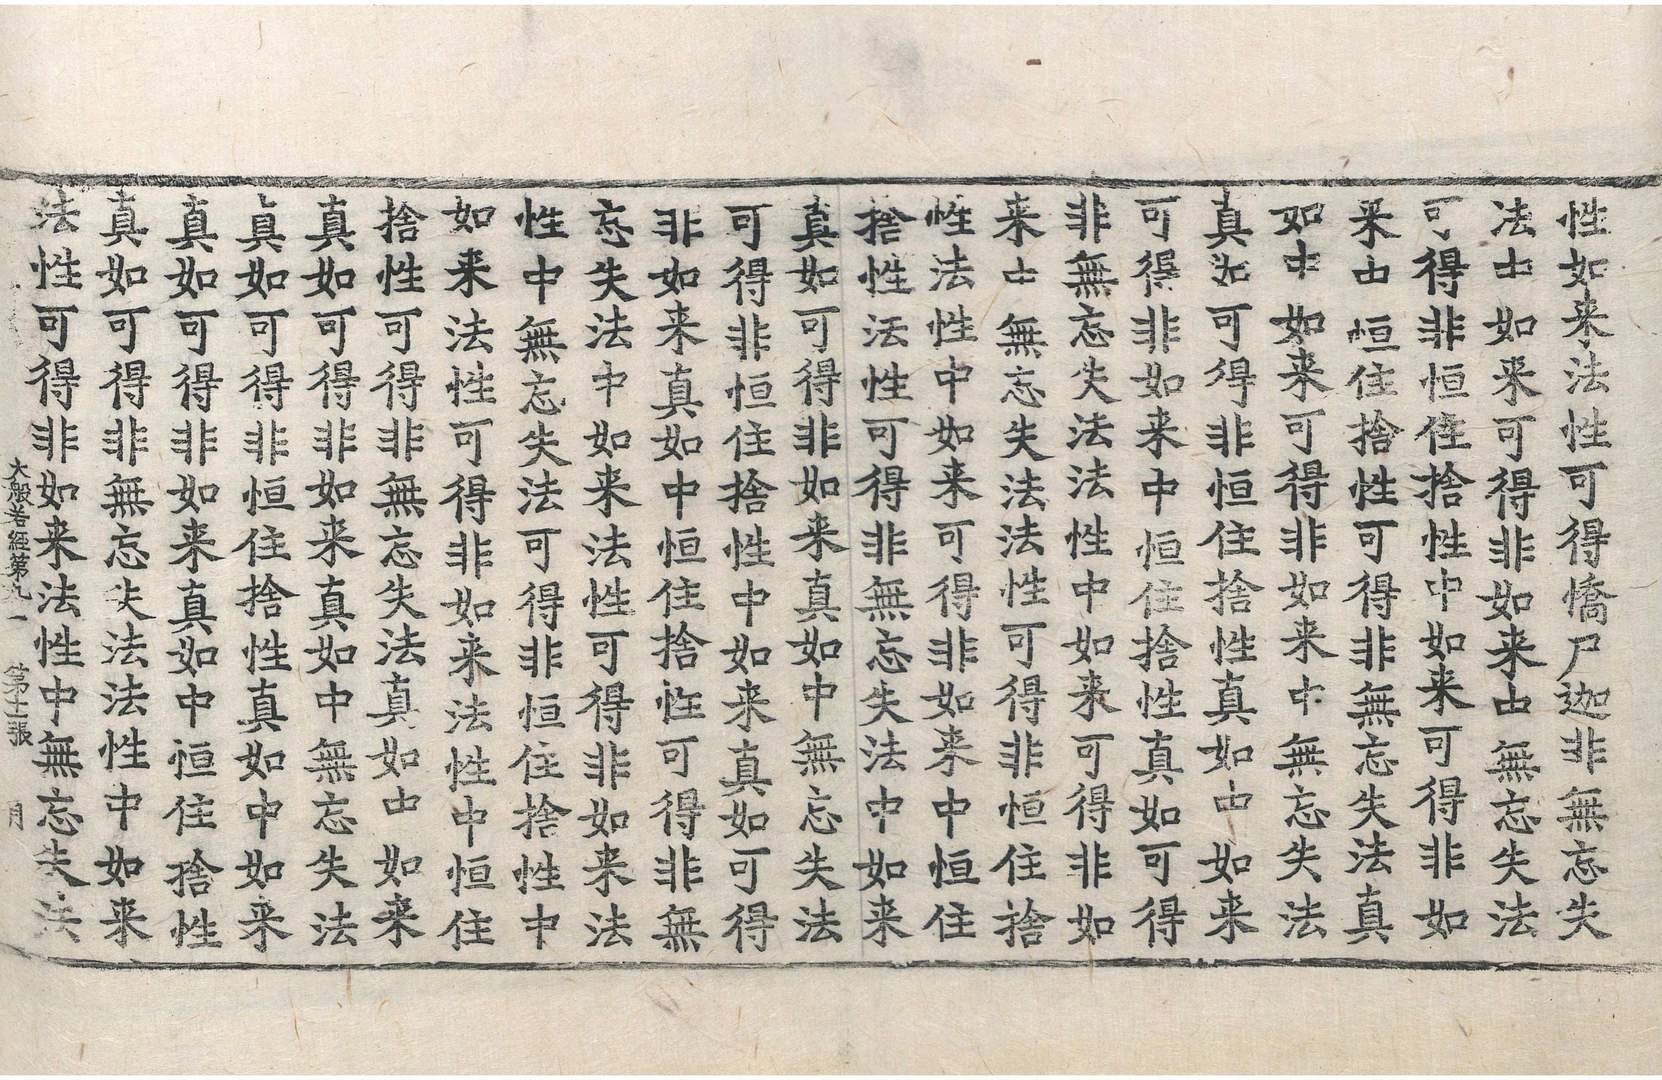 性如来法性可得憍尸迦非無忘失
法中如来可得非如来中無忘失法
可得非恒住捨性中如来可得非如
来中恒住捨性可得非無忘失法真
如中如来可得非如来中無忘失法
真如可得非恒住捨性真如中如来
可得非如来中恒住捨性真如可得
非無忘失法法性中如来可得非如
来中無忘失法法性可得非恒住捨
性法性中如来可得非如来中恒住
捨性法性可得非無忘失法中如来
真如可得非如来真如中無忘失法
可得非恒住捨性中如来真如可得
非如来真如中恒住捨性可得非無
忘失法中如来法性可得非如来法
性中無忘失法可得非恒住捨性中
如来法性可得非如来法性中恒住
捨性可得非無忘失法真如中如来
真如可得非如来真如中無忘失法
真如可得非恒住捨性真如中如来
真如可得非如来真如中恒住捨性
真如可得非無忘失法法性中如来
法性可得非如来法性中無忘失法
大般若經第九一 第十一張 月